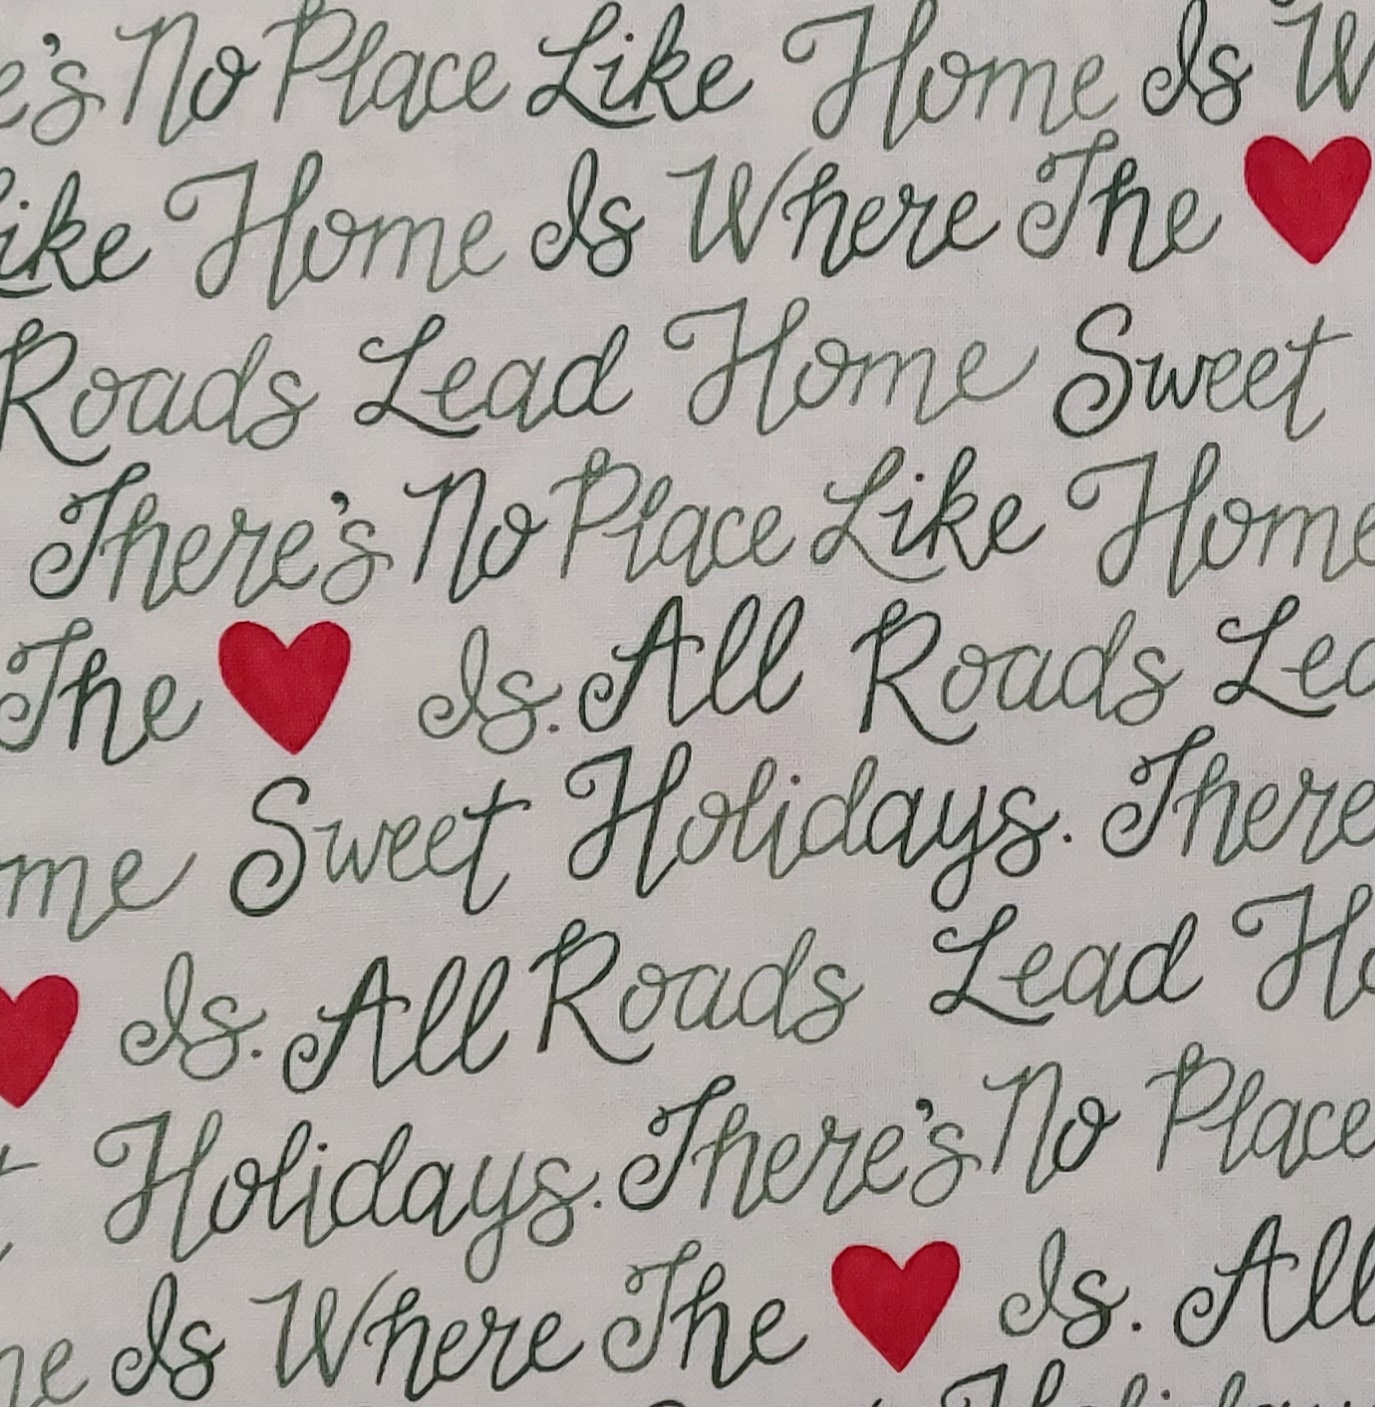 e's No Place Like Home Is W
ike Home Is Where The
Roads Lead Home Sweet
There's No Place Like Home
The Is. All Roads Lea
me Sweet Holidays. There
Is. All Roads Lead Ho
t Holidays. There's No Place
me Is Where The Is. All
Holidays